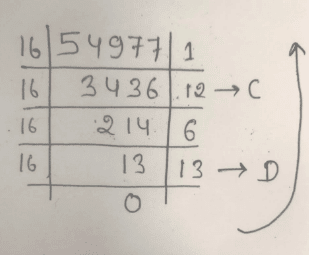 16 54977 1
16 3436 12 → C
16 214 6
16 13 13 → D
0